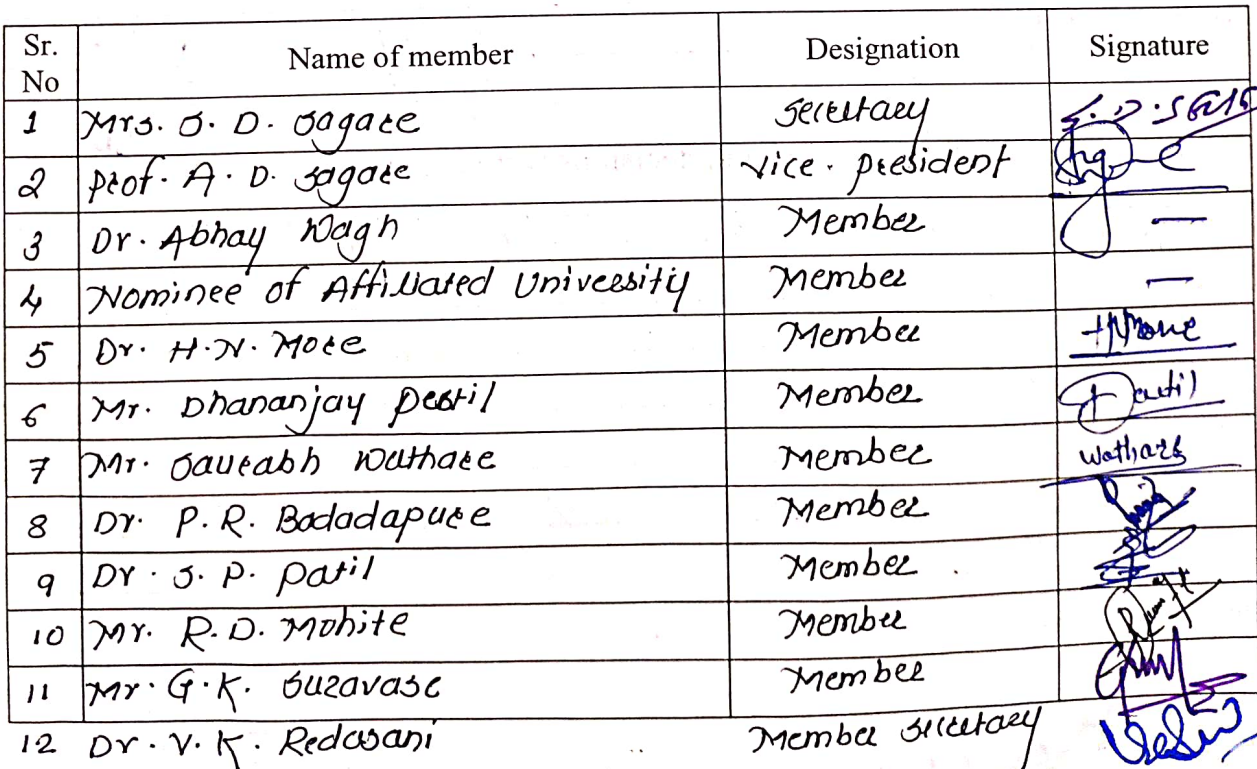 Sr. No Name of member Designation Signature
1 Mrs. S. D. Sagare Secretary
2 Prof. A. D. Sagare Vice. president
3 Dr. Abhay Wagh Member —
4 Nominee of Affiliated University Member —
5 Dr. H. N. More Member HNMore
6 Mr. Dhananjay Patil Member Patil
7 Mr. Saurabh Wathare Member Wathare
8 Dr. P. R. Badadapure Member
9 Dr. S. P. Patil Member
10 Mr. R. D. Mohite Member
11 Mr. G. K. Suravase Member
12 Dr. V. K. Redasani Member Secretary